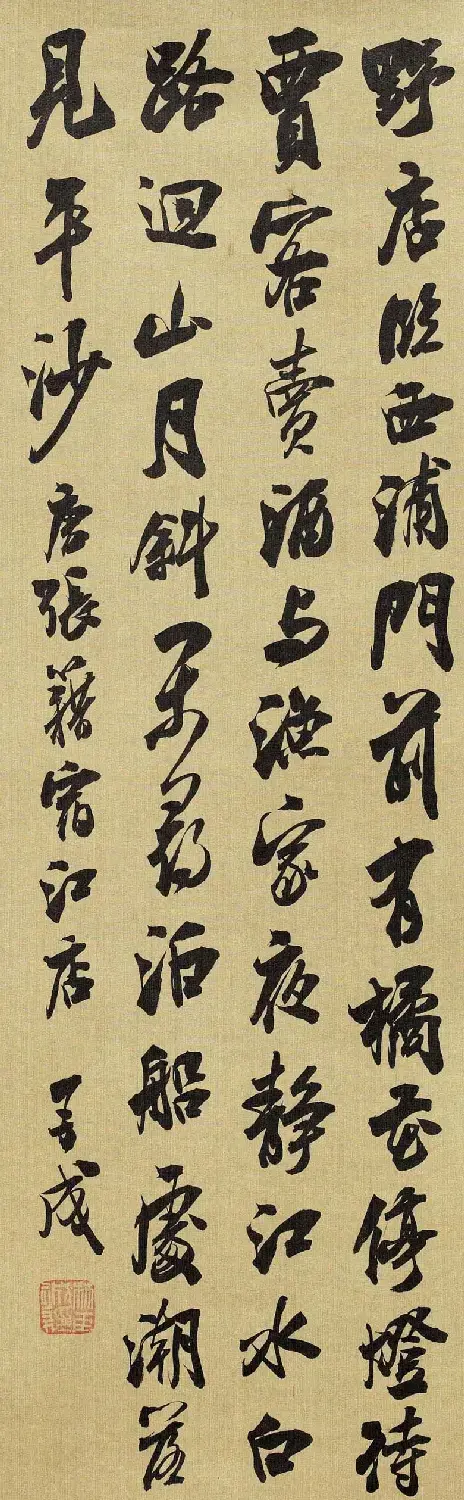 野店臨西浦門前有橘花停燈待
賈客賣酒与漁家夜靜江水白
路迴山月斜閒尋泊船處潮落
見平沙 唐張籍宿江店 成